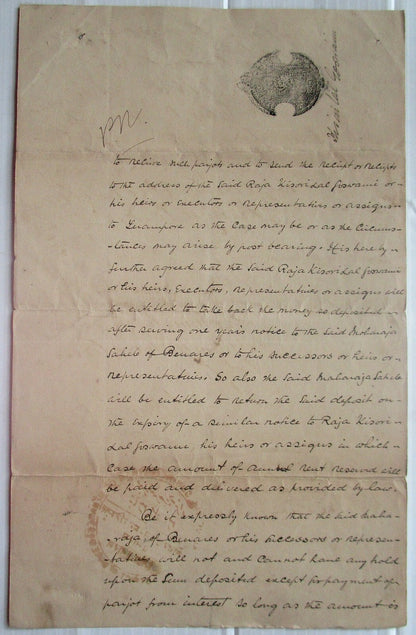 to recieve such parjots and to send the reciept or reciepts
to the address of the said Raja Kisorilal Goswami or
his heirs or Executors or Representatives or assigns
to Serampore as the Case may be or as the Circums-
-tances may arise by post bearing. It is hereby
further agreed that the said Raja Kisorilal Goswami
or his heirs, Executors, Representatives or assigns will
be entitled to take back the money so deposited
after serving one year's notice to the said Maharaja
Saheb of Benares or to his successors or heirs or
representatives. So also the said Maharaja Saheb
will be entitled to return the said deposit on
the expiry of a similar notice to Raja Kisori-
-lal Goswami, his heirs or assigns in which
Case the amount of annual rent reserved will
be paid and delivered as provided by law.
Be it expressly known that the said Maha-
-raja of Benares or his successors or represen-
-tatives will not and Cannot have any hold
upon the Sum deposited except for payment of
parjot from interest so long as the amount is